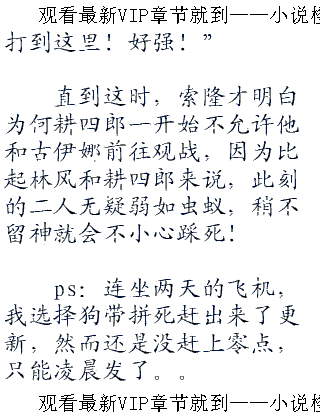 观看最新VIP章节就到——小说
打到这里！好强！”
直到这时，索隆才明白
为何耕四郎一开始不允许他
和古伊娜前往观战，因为比
起林风和耕四郎来说，此刻
的二人无疑弱如虫蚁，稍不
留神就会不小心踩死！
ps：连坐两天的飞机，
我选择狗带拼死赶出来了更
新，然而还是没赶上零点，
只能凌晨发了。。
观看最新VIP章节就到——小说